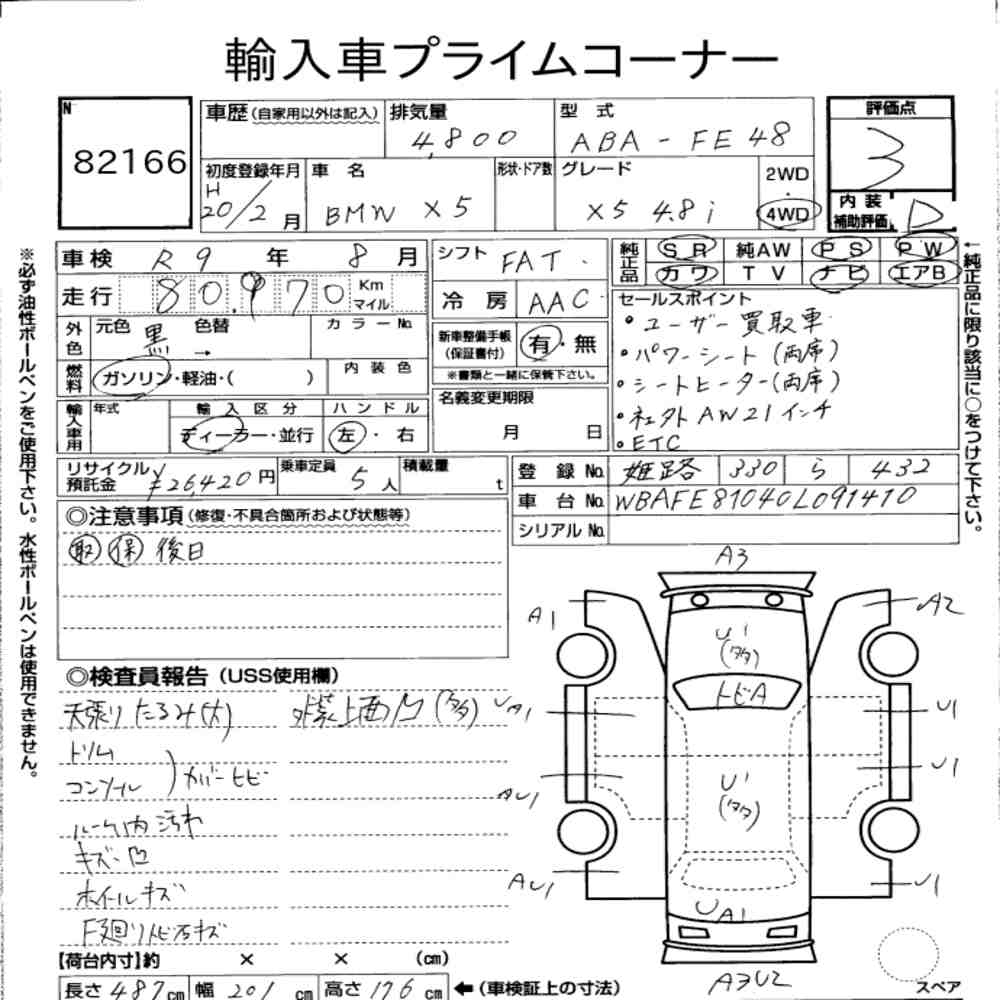 輸入車プライムコーナー
N
82166
車歴(自家用以外は記入) 排気量 型式
4,800 ABA-FE48
初度登録年月 車名 形状・ドア数 グレード 2WD・4WD
H20/2月 BMW X5 X5 4.8i
評価点
3
内装補助評価 D
車検 R9年 8月
走行 80,970 Km マイル
外色 元色 黒 色替 → カラーNo.
燃料 ガソリン・軽油・( ) 内装色
輸入車用 年式 輸入区分 ハンドル
ディーラー・並行 左・右
シフト FAT
冷房 AAC
新車整備手帳(保証書付) 有・無
※書類と一緒に保管下さい。
名義変更期限
月 日
純正品 SR 純AW PS PW
カワ TV ナビ エアB
セールスポイント
・ユーザー買取車
・パワーシート(両席)
・シートヒーター(両席)
・社外AW21インチ
・ETC
リサイクル預託金 ¥26,420円 乗車定員 5人 積載量 t
登録No. 姫路 330 ら 432
車台No. WBAFE81040L091410
シリアルNo.
◎注意事項(修復・不具合箇所および状態等)
取 保 後日
◎検査員報告(USS使用欄)
天張りたるみ(大) 外装上面凹(多々)
トリム
コンソール )カバーヒビ
ルーム内汚れ
キズ凹
ホイールキズ
F廻り飛石キズ
A3
A1
A2
U1
(多々)
トビA
UA1
U1
AU1
U1
U1
(多々)
AU1
U1
UA1
A3U2
スペア
【荷台内寸】約 × × (cm)
長さ 487cm 幅 201cm 高さ 176cm ←(車検証上の寸法)
※必ず油性ボールペンをご使用下さい。水性ボールペンは使用できません。
←純正品に限り該当に○をつけて下さい。